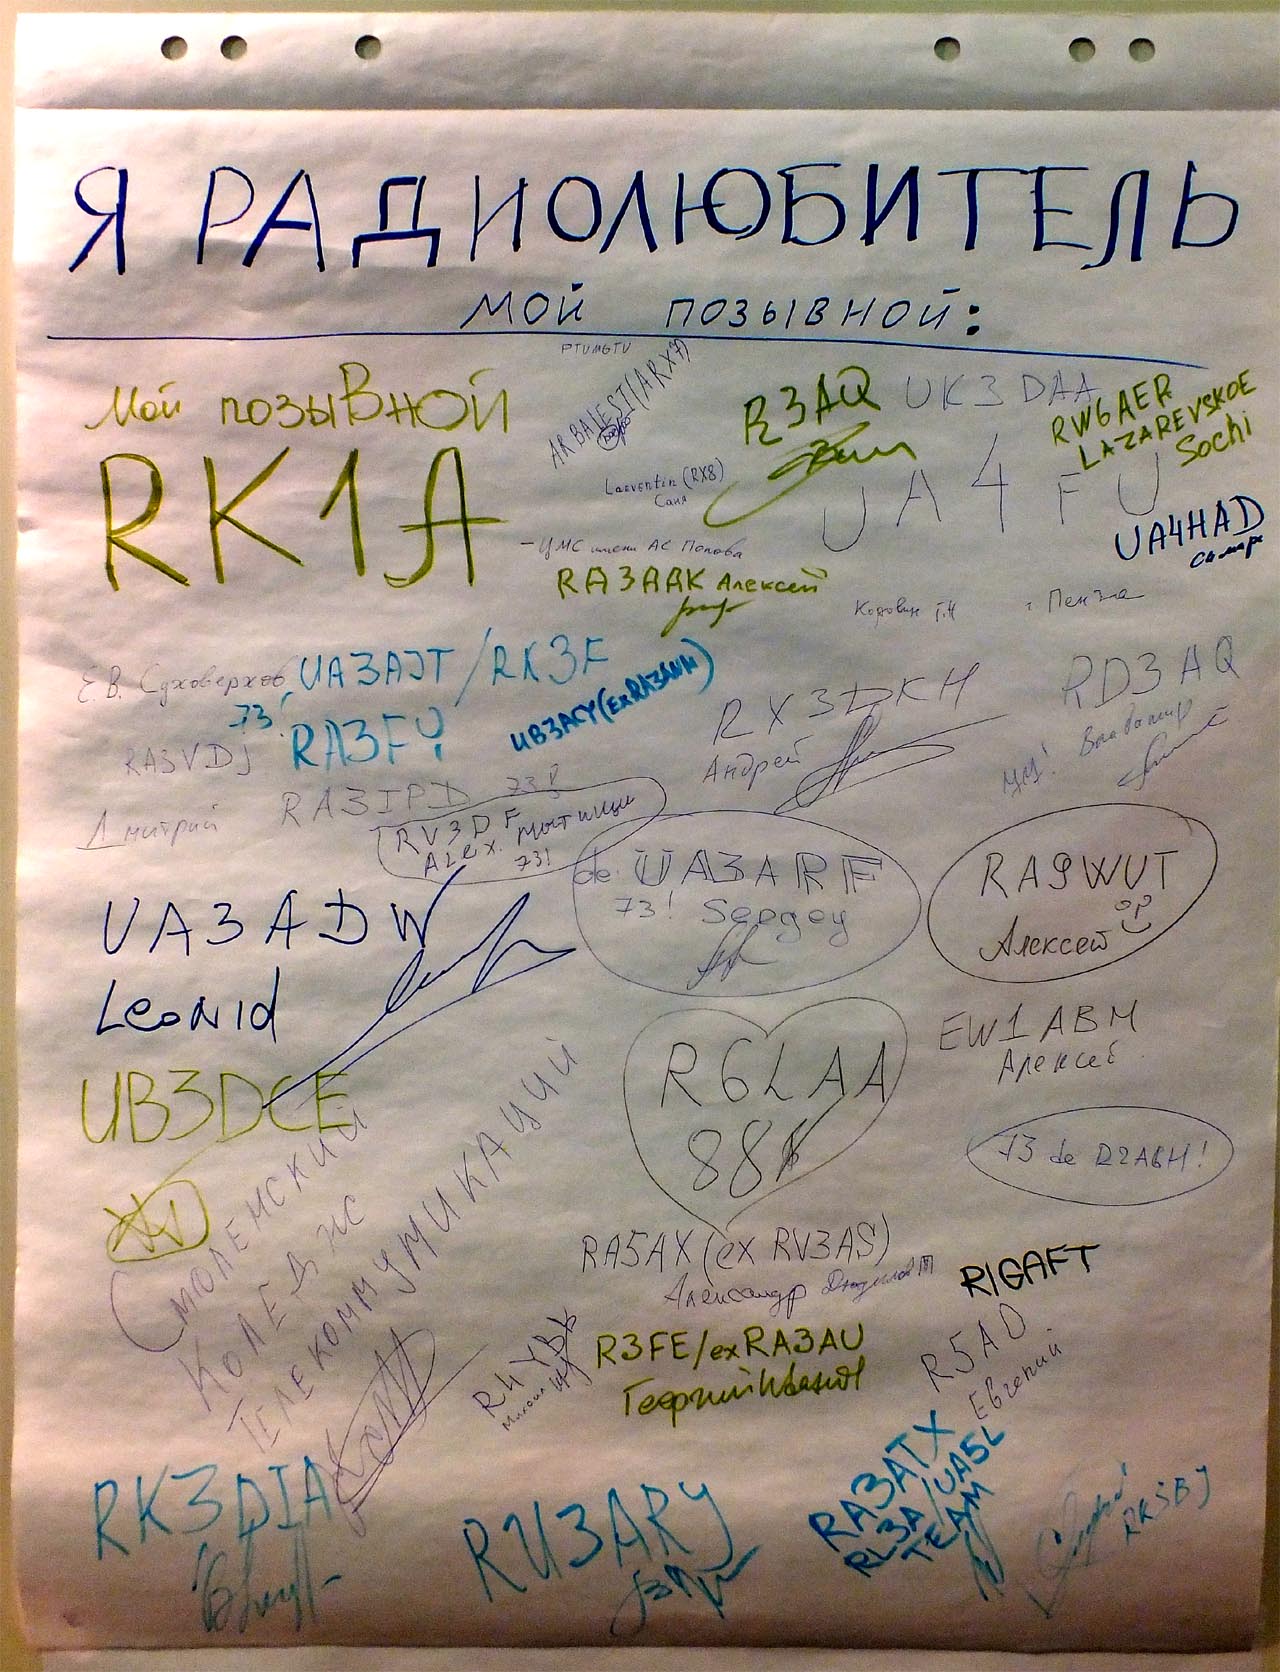 Я РАДИОЛЮБИТЕЛЬ
МОЙ ПОЗЫВНОЙ:
PTUMGTU
Мой позывной
RK1A
ARBALEST (ARX7)
R3AQ
UK3DAA
RW6AER
LAZAREVSKOE
Sochi
Laeventin (RX8)
Саня
UA4FU
UA4HAD
Самара
- ЦМС имени АС Попова
RA3AAK Алексей
г. Пенза
Е.В. Суховерхов, UA3AJT / RK3F
73!
RA3FY
UB3ACY (ex RA3AWH)
RX3DKH
Андрей
RD3AQ
Владимир
RA3VDJ
Дмитрий
RA3IPD 73!
RV3DF
Alex. Мытищи
73!
de UA3ARF
73! Sergey
RA9WUT
Алексей
UA3ADW
Leonid
EW1ABM
Алексей
UB3DCE
R6LAA
88
73 de R2ABH!
Смоленский
Коледж
Телекоммуникаций
RA5AX (ex RV3AS)
Александр
R1GAFT
R3FE/ex RA3AU
Георгий Иванов
R5AO
Евгений
Михаил
RK3DIA
RU3ARY
RA3ATX
RL3A/UA5L
TEAM
RK5BJ